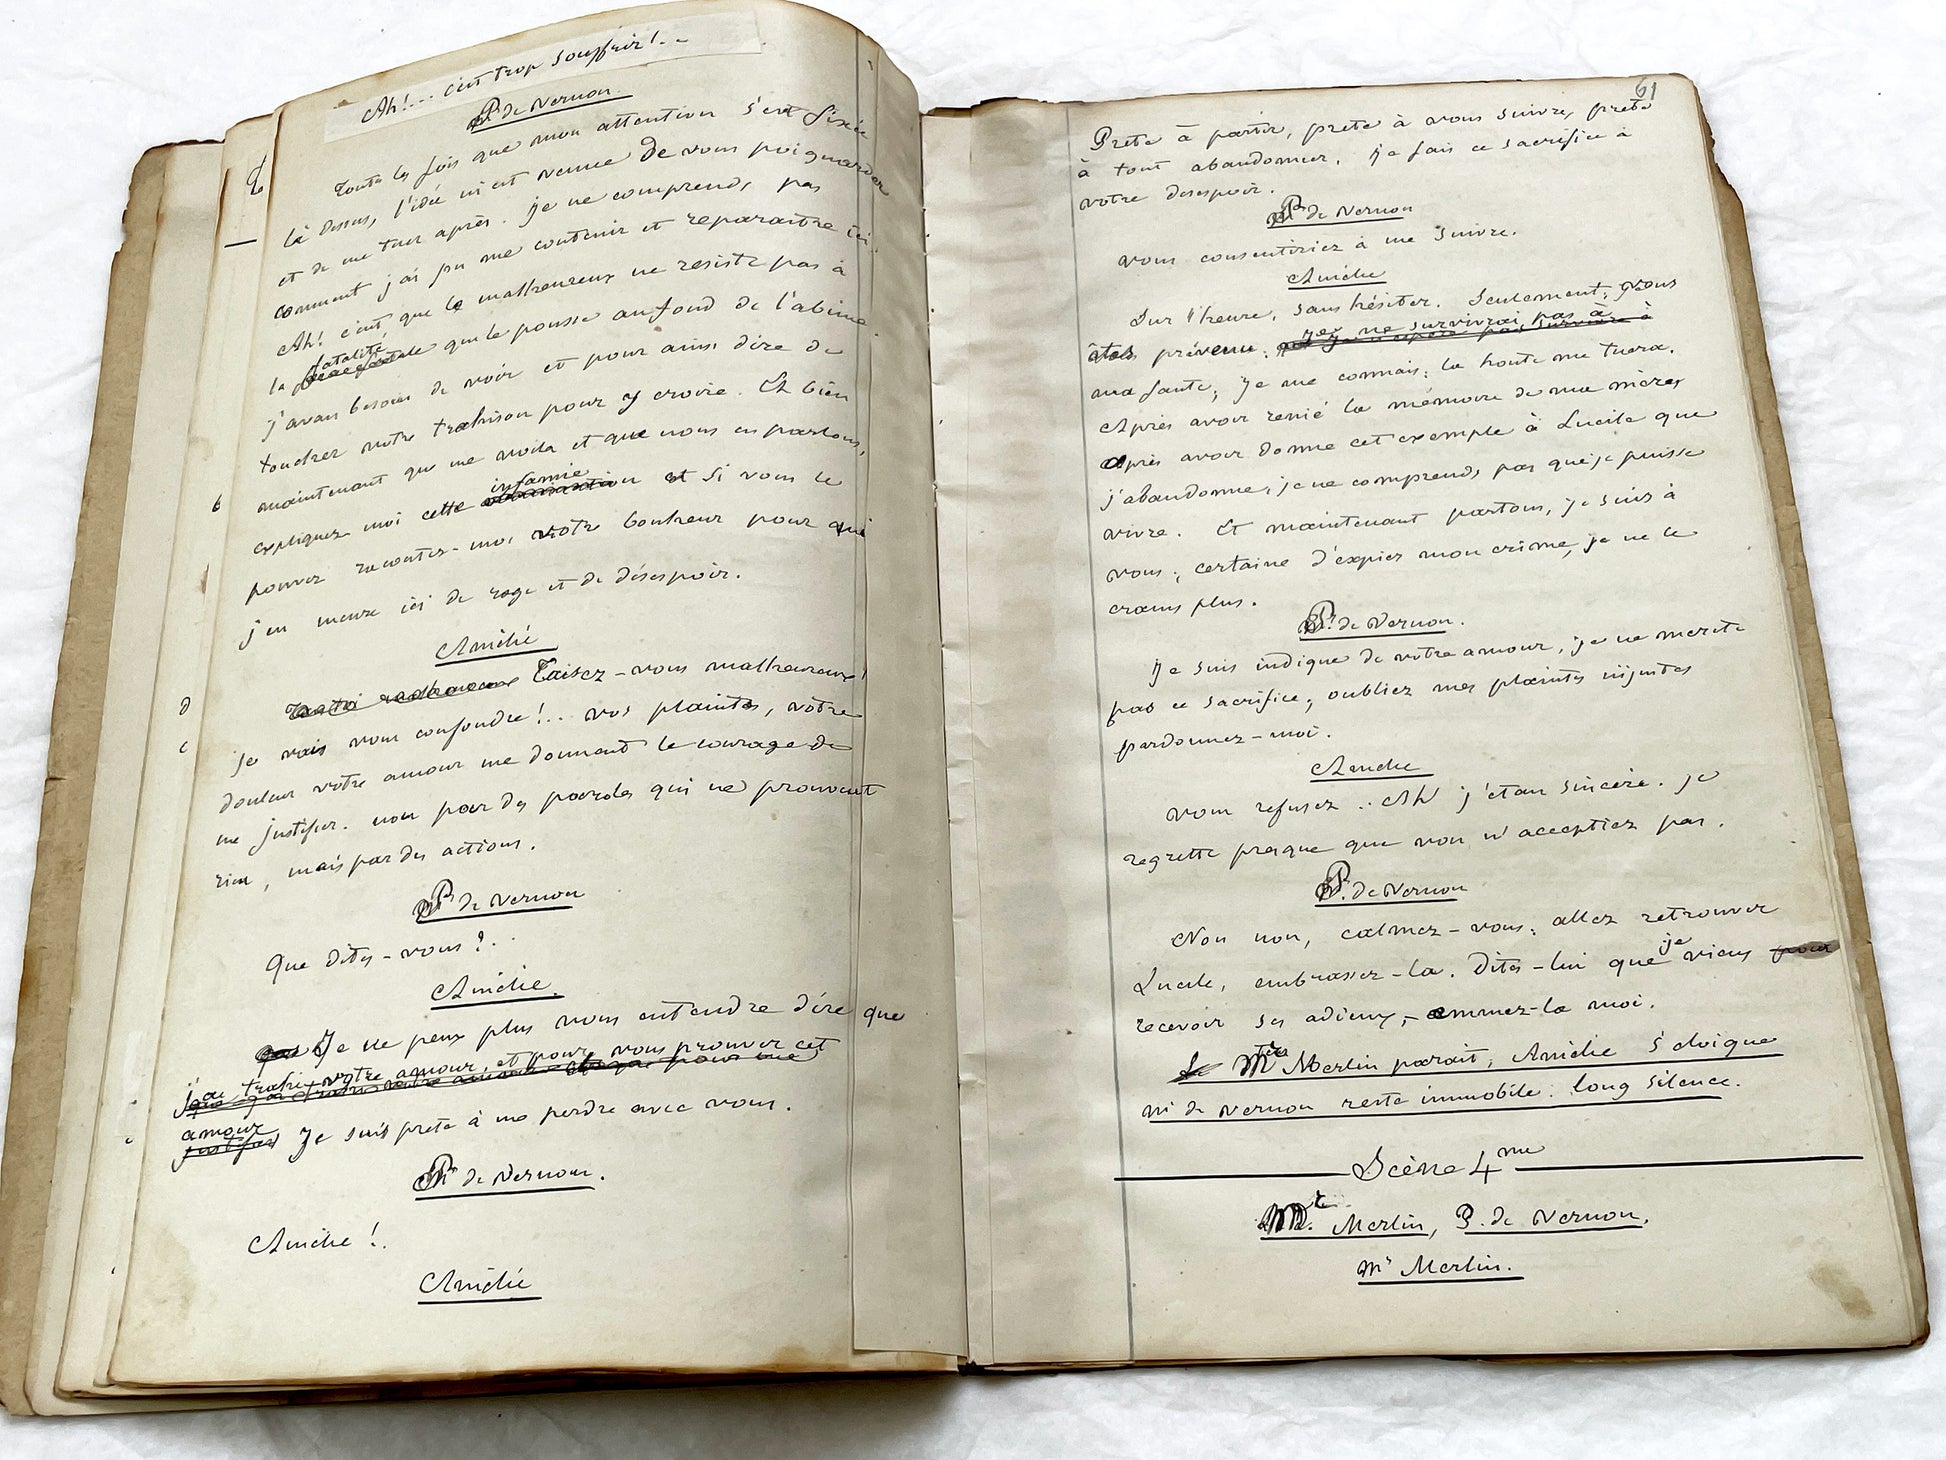 Ah!... c'est trop souffrir!..
P. de Vernon.
Toutes les fois que mon attention s'est fixée
là dessus, l'idée m'est venue de vous poignarder
et de me tuer après. Je ne comprends pas
comment j'ai pu me contenir et reparaitre ici.
Ah! c'est que le malheureux ne resiste pas à
la fatalité qui le pousse au fond de l'abime.
j'avais besoin de voir et pour ainsi dire de
toucher votre trahison pour y croire. Et bien
maintenant que me voila et que nous en parlons,
expliquez moi cette infamie et si vous le
pouvez racontez-moi votre bonheur pour qui
j'en meure ici de rage et de désespoir.
Amélie
Taisez-vous malheureux!
je vais vous confondre!.. vos plaintes, votre
douleur votre amour me donnent le courage de
me justifier. non par des paroles qui ne prouvent
rien, mais par des actions.
P. de Vernon
Que dites-vous?..
Amélie.
Je ne peux plus vous entendre dire que
j'ai trahi votre amour, et pour vous prouver cet
amour
Je suis prete à me perdre avec vous.
P. de Vernon.
Amélie!.
Amélie
61
Prete à partir, prete à vous suivre, prete
à tout abandonner. Je fais ce sacrifice à
votre desespoir.
P. de Vernon
Vous consentiriez à me suivre.
Amélie
Sur l'heure, sans hésiter. Seulement, vous
êtes prévenu: je ne survivrai pas à
ma faute, Je me connais: la honte me tuera.
Après avoir renié la mémoire de ma mère,
après avoir donné cet exemple à Lucile que
j'abandonne, je ne comprends pas que je puisse
vivre. Et maintenant partons, je suis à
vous; certaine d'expier mon crime, je ne le
crains plus.
P. de Vernon.
Je suis indigne de votre amour, je ne merite
pas ce sacrifice; oubliez mes plaintes injustes
pardonnez-moi.
Amélie
Vous refusez.. Ah! j'étais sincère. je
regrette presque que vous n'acceptiez pas.
P. de Vernon
Non non, calmez-vous; allez retrouver
Lucile, embrassez-la. Dites-lui que je viens pour
recevoir ses adieux, - emmnez-la moi.
Mr Merlin parait, Amélie s'éloigne
M. de Vernon reste immobile. long silence.
Scène 4me
Mr. Merlin, P. de Vernon.
Mr Merlin.